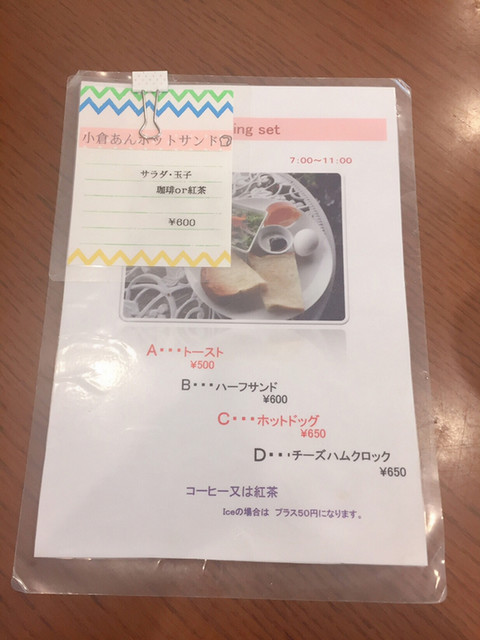 小倉あんホットサンド
サラダ・玉子
珈琲or紅茶
¥600
ing set
7:00~11:00
A・・・トースト
¥500
B・・・ハーフサンド
¥600
C・・・ホットドッグ
¥650
D・・・チーズハムクロック
¥650
コーヒー又は紅茶
Iceの場合は プラス50円になります。